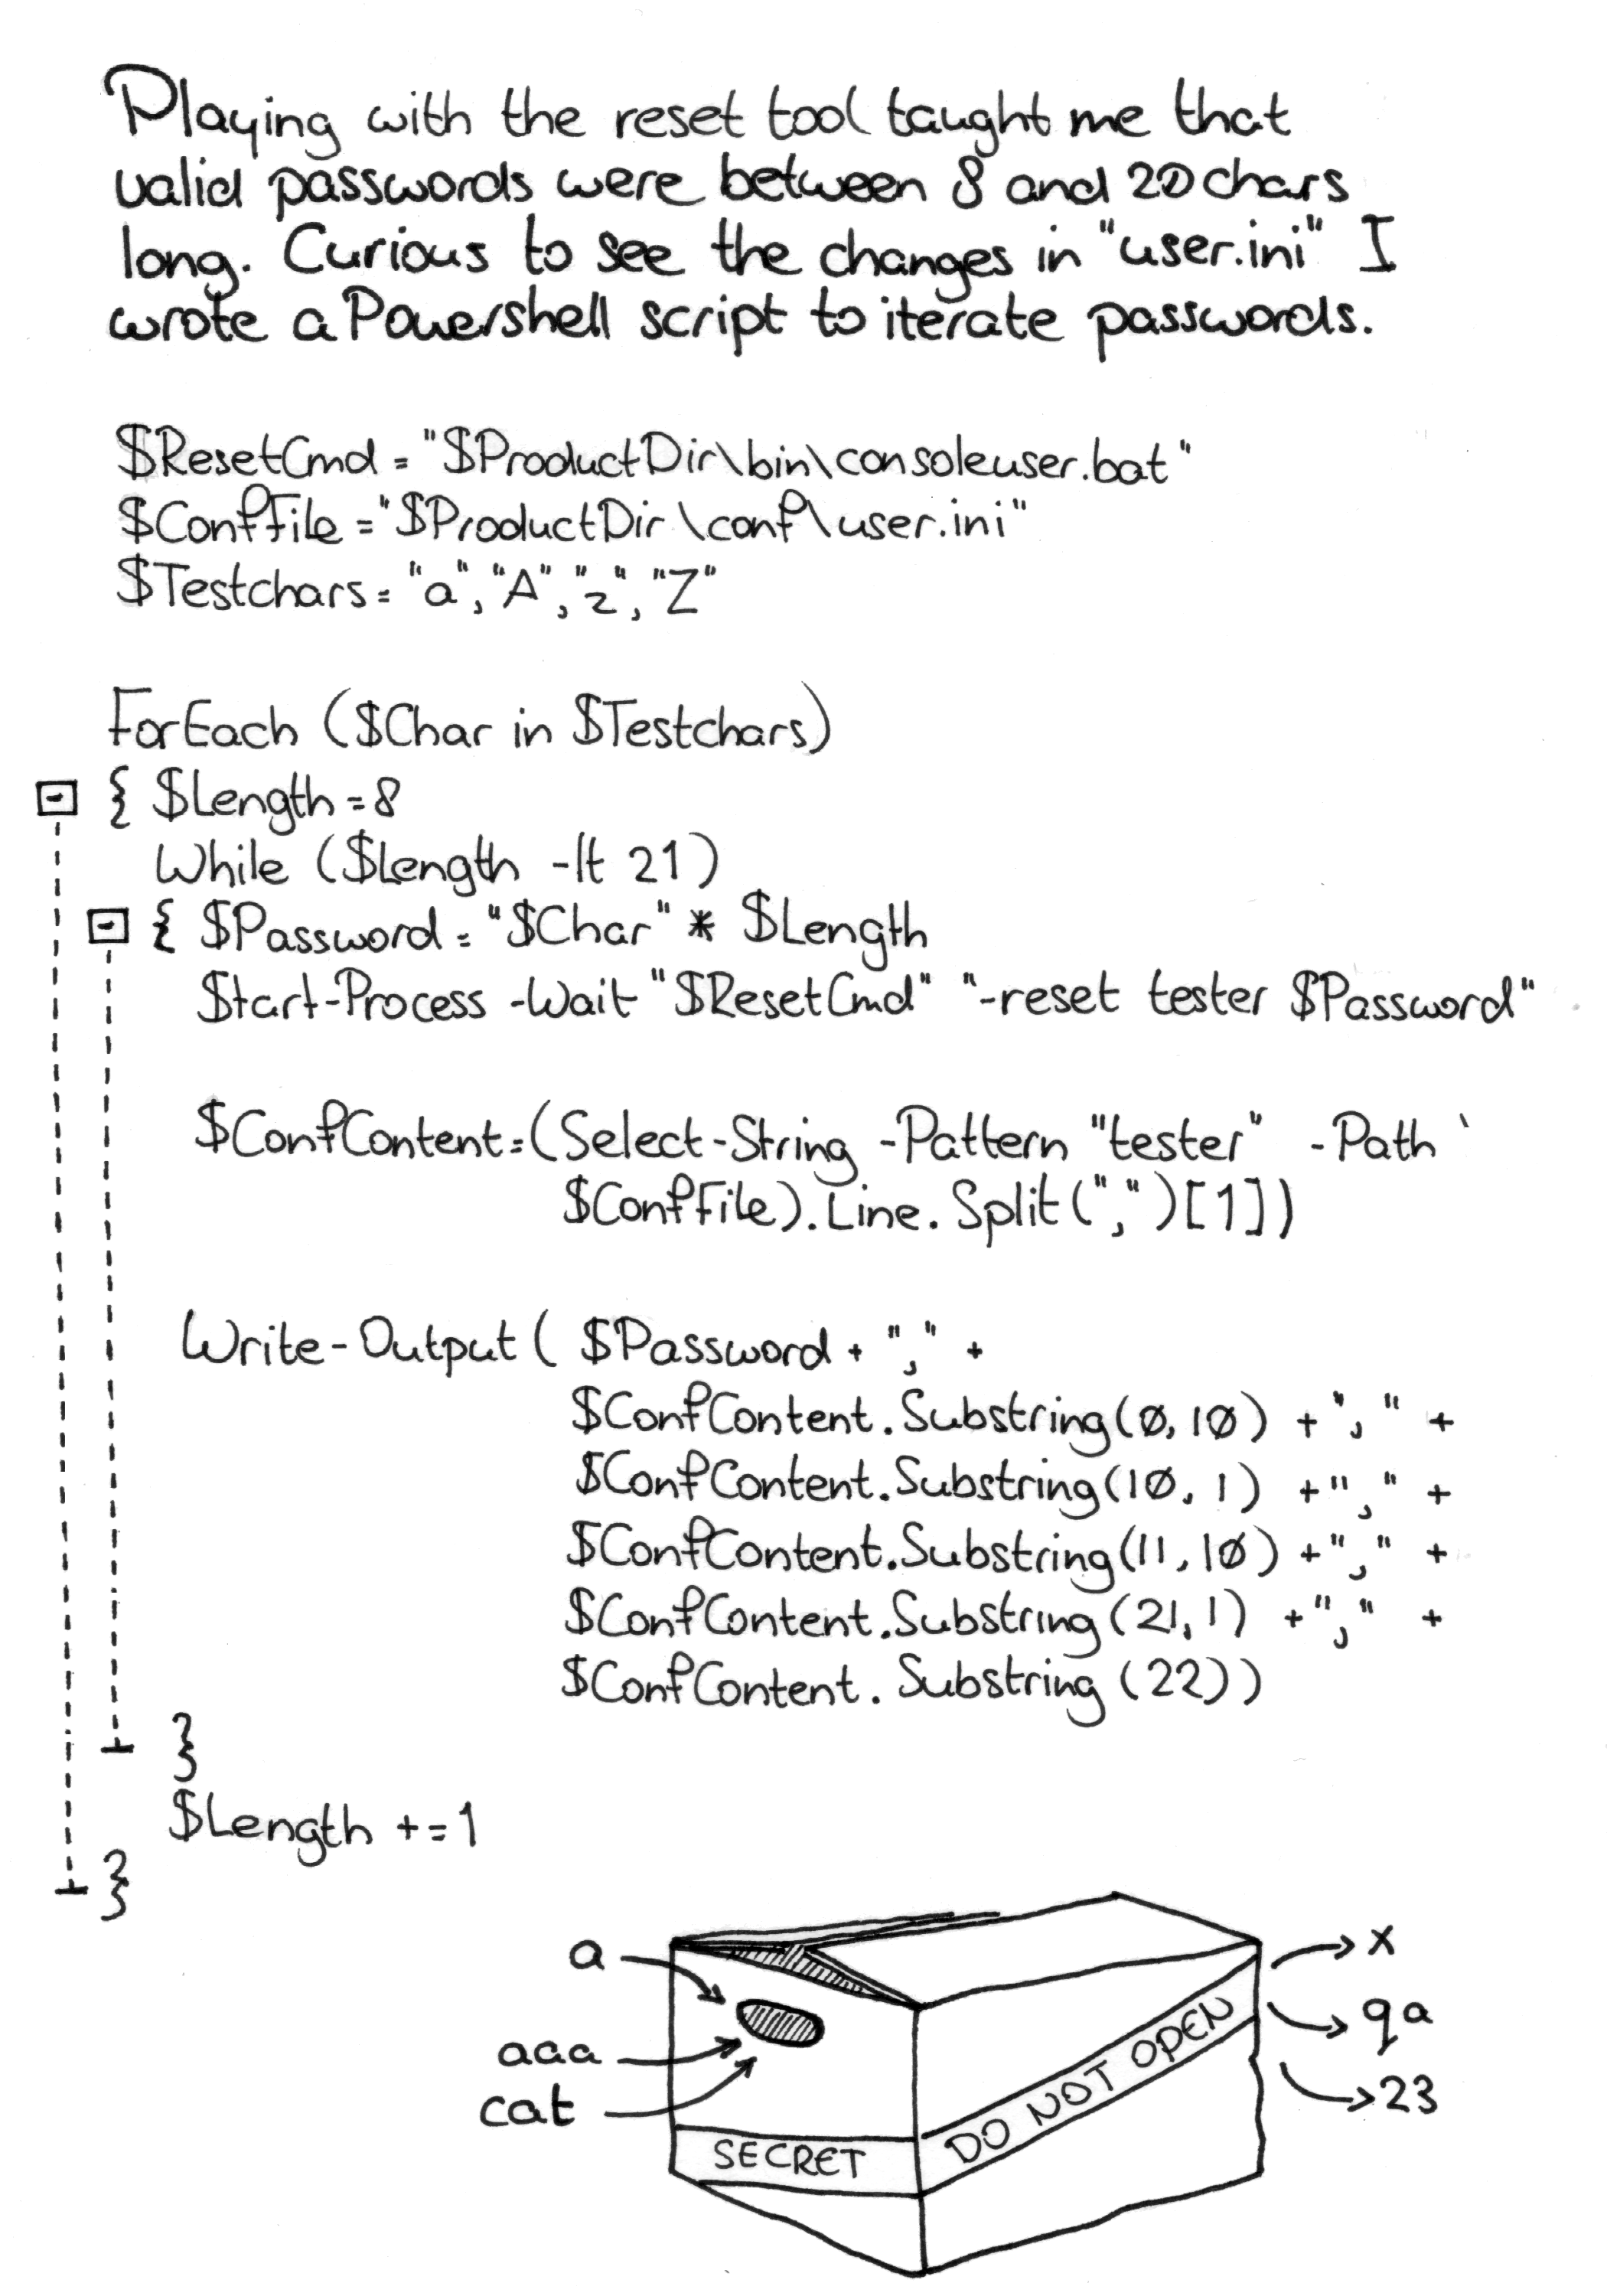 Playing with the reset tool taught me that
valid passwords were between 8 and 20 chars
long. Curious to see the changes in "user.ini" I
wrote a Powershell script to iterate passwords.
$ResetCmd = "$ProductDir\bin\consoleuser.bat"
$ConfFile = "$ProductDir\conf\user.ini"
$Testchars = "a","A","z","Z"
ForEach ($Char in $Testchars)
{ $Length = 8
While ($Length -lt 21)
{ $Password = "$Char" * $Length
Start-Process -Wait "$ResetCmd" "-reset tester $Password"
$ConfContent = (Select-String -Pattern "tester" -Path `
$ConfFile).Line.Split(",")[1])
Write-Output ( $Password + "," +
$ConfContent.Substring(0, 10) + "," +
$ConfContent.Substring(10, 1) + "," +
$ConfContent.Substring(11, 10) + "," +
$ConfContent.Substring(21, 1) + "," +
$ConfContent.Substring(22))
}
$Length += 1
}
a
aaa
cat
SECRET
DO NOT OPEN
x
qa
23